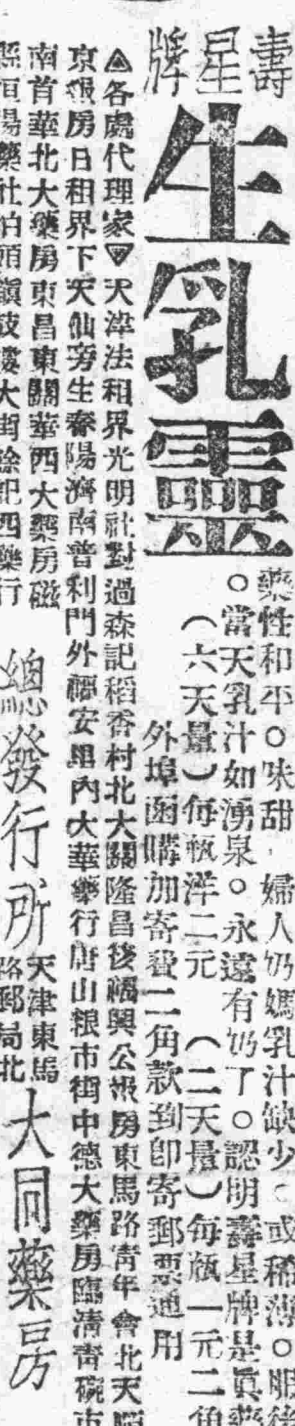 壽星牌
生乳靈
藥性和平。味甜，婦人奶媽乳汁缺少。或稀薄。服後
。當天乳汁如湧泉。永遠有奶了。認明壽星牌是眞藥
（六天量）每瓶洋二元　（二天量）每瓶一元二角
外埠函購加寄費二角款到卽寄郵票通用
▲各處代理家▼天津法租界光明社對過森記稻香村北大關隆昌後福興公報房東馬路靑年會北天
京報房日租界下天仙旁生春陽濟南普利門外福安里內大華藥行唐山粮市街中德大藥房臨淸靑碗市
南首華北大藥房東昌東關華西大藥房磁
縣恒陽藥社泊頭鎭鼓樓大街餘記西藥行
總發行所
天津東馬
路郵局北
大同藥房